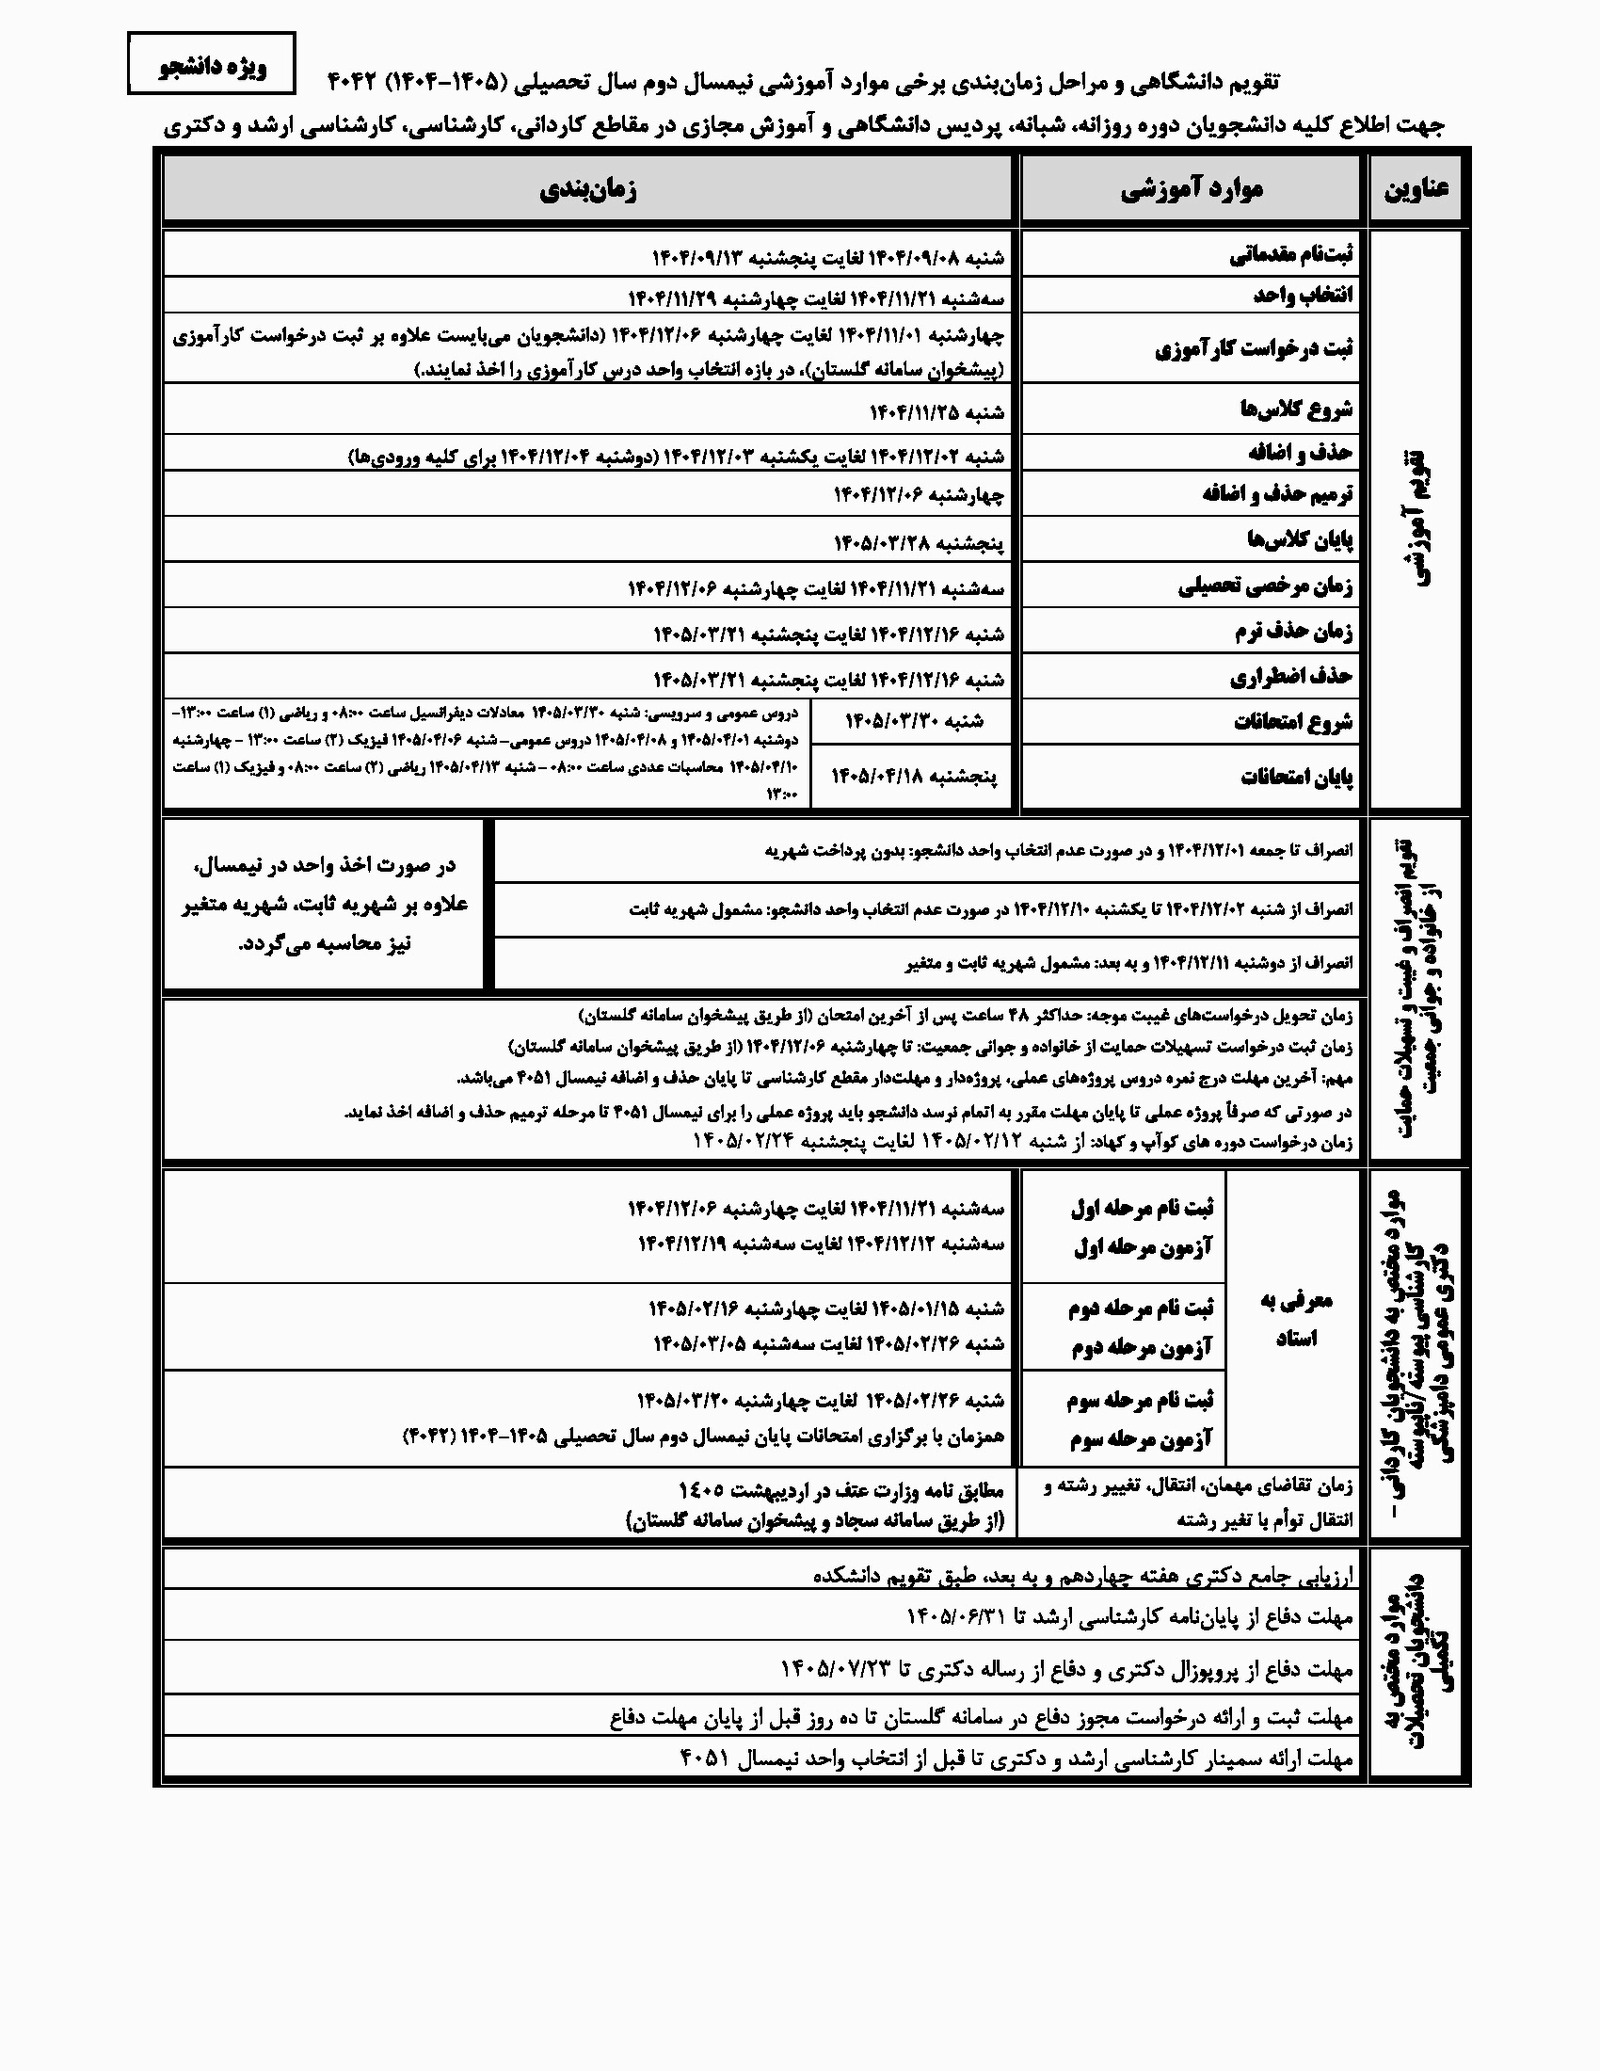 ویژه دانشجو
تقویم دانشگاهی و مراحل زمان‌بندی برخی موارد آموزشی نیمسال دوم سال تحصیلی (۱۴۰۵-۱۴۰۴) ۴۰۴۲
جهت اطلاع کلیه دانشجویان دوره روزانه، شبانه، پردیس دانشگاهی و آموزش مجازی در مقاطع کاردانی، کارشناسی، کارشناسی ارشد و دکتری
عناوین موارد آموزشی زمان‌بندی
تقویم آموزشی
ثبت‌نام مقدماتی شنبه ۱۴۰۴/۰۹/۰۸ لغایت پنجشنبه ۱۴۰۴/۰۹/۱۳
انتخاب واحد سه‌شنبه ۱۴۰۴/۱۱/۲۱ لغایت چهارشنبه ۱۴۰۴/۱۱/۲۹
ثبت درخواست کارآموزی چهارشنبه ۱۴۰۴/۱۱/۰۱ لغایت چهارشنبه ۱۴۰۴/۱۲/۰۶ (دانشجویان می‌بایست علاوه بر ثبت درخواست کارآموزی
(پیشخوان سامانه گلستان)، در بازه انتخاب واحد درس کارآموزی را اخذ نمایند.)
شروع کلاس‌ها شنبه ۱۴۰۴/۱۱/۲۵
حذف و اضافه شنبه ۱۴۰۴/۱۲/۰۲ لغایت یکشنبه ۱۴۰۴/۱۲/۰۳ (دوشنبه ۱۴۰۴/۱۲/۰۴ برای کلیه ورودی‌ها)
ترمیم حذف و اضافه چهارشنبه ۱۴۰۴/۱۲/۰۶
پایان کلاس‌ها پنجشنبه ۱۴۰۵/۰۳/۲۸
زمان مرخصی تحصیلی سه‌شنبه ۱۴۰۴/۱۱/۲۱ لغایت چهارشنبه ۱۴۰۴/۱۲/۰۶
زمان حذف ترم شنبه ۱۴۰۴/۱۲/۱۶ لغایت پنجشنبه ۱۴۰۵/۰۳/۲۱
حذف اضطراری شنبه ۱۴۰۴/۱۲/۱۶ لغایت پنجشنبه ۱۴۰۵/۰۳/۲۱
شروع امتحانات شنبه ۱۴۰۵/۰۳/۳۰
پایان امتحانات پنجشنبه ۱۴۰۵/۰۴/۱۸
دروس عمومی و سرویسی: شنبه ۱۴۰۵/۰۳/۳۰ معادلات دیفرانسیل ساعت ۰۸:۰۰ و ریاضی (۱) ساعت ۱۳:۰۰-
دوشنبه ۱۴۰۵/۰۴/۰۱ و ۱۴۰۵/۰۴/۰۸ دروس عمومی- شنبه ۱۴۰۵/۰۴/۰۶ فیزیک (۲) ساعت ۱۳:۰۰ - چهارشنبه
۱۴۰۵/۰۴/۱۰ محاسبات عددی ساعت ۰۸:۰۰ - شنبه ۱۴۰۵/۰۴/۱۳ ریاضی (۲) ساعت ۰۸:۰۰ و فیزیک (۱) ساعت
۱۳:۰۰
تقویم انصراف و غیبت و تسهیلات حمایت
از خانواده و جوانی جمعیت
انصراف تا جمعه ۱۴۰۴/۱۲/۰۱ و در صورت عدم انتخاب واحد دانشجو: بدون پرداخت شهریه
انصراف از شنبه ۱۴۰۴/۱۲/۰۲ تا یکشنبه ۱۴۰۴/۱۲/۱۰ در صورت عدم انتخاب واحد دانشجو: مشمول شهریه ثابت
انصراف از دوشنبه ۱۴۰۴/۱۲/۱۱ و به بعد: مشمول شهریه ثابت و متغیر
در صورت اخذ واحد در نیمسال،
علاوه بر شهریه ثابت، شهریه متغیر
نیز محاسبه می‌گردد.
زمان تحویل درخواست‌های غیبت موجه: حداکثر ۴۸ ساعت پس از آخرین امتحان (از طریق پیشخوان سامانه گلستان)
زمان ثبت درخواست تسهیلات حمایت از خانواده و جوانی جمعیت: تا چهارشنبه ۱۴۰۴/۱۲/۰۶ (از طریق پیشخوان سامانه گلستان)
مهم: آخرین مهلت درج نمره دروس پروژه‌های عملی، پروژه‌دار و مهلت‌دار مقطع کارشناسی تا پایان حذف و اضافه نیمسال ۴۰۵۱ می‌باشد.
در صورتی که صرفاً پروژه عملی تا پایان مهلت مقرر به اتمام نرسد دانشجو باید پروژه عملی را برای نیمسال ۴۰۵۱ تا مرحله ترمیم حذف و اضافه اخذ نماید.
زمان درخواست دوره های کوآپ و کهاد: از شنبه ۱۴۰۵/۰۲/۱۲ لغایت پنجشنبه ۱۴۰۵/۰۲/۲۴
موارد مختص به دانشجویان کاردانی -
کارشناسی پیوسته/ناپیوسته
دکتری عمومی دامپزشکی
معرفی به
استاد
ثبت نام مرحله اول سه‌شنبه ۱۴۰۴/۱۱/۲۱ لغایت چهارشنبه ۱۴۰۴/۱۲/۰۶
آزمون مرحله اول سه‌شنبه ۱۴۰۴/۱۲/۱۲ لغایت سه‌شنبه ۱۴۰۴/۱۲/۱۹
ثبت نام مرحله دوم شنبه ۱۴۰۵/۰۱/۱۵ لغایت چهارشنبه ۱۴۰۵/۰۲/۱۶
آزمون مرحله دوم شنبه ۱۴۰۵/۰۲/۲۶ لغایت سه‌شنبه ۱۴۰۵/۰۳/۰۵
ثبت نام مرحله سوم شنبه ۱۴۰۵/۰۲/۲۶ لغایت چهارشنبه ۱۴۰۵/۰۳/۲۰
آزمون مرحله سوم همزمان با برگزاری امتحانات پایان نیمسال دوم سال تحصیلی ۱۴۰۵-۱۴۰۴ (۴۰۴۲)
زمان تقاضای مهمان، انتقال، تغییر رشته و
انتقال توأم با تغیر رشته
مطابق نامه وزارت عتف در اردیبهشت ۱٤۰۵
(از طریق سامانه سجاد و پیشخوان سامانه گلستان)
موارد مختص به
دانشجویان تحصیلات
تکمیلی
ارزیابی جامع دکتری هفته چهاردهم و به بعد، طبق تقویم دانشکده
مهلت دفاع از پایان‌نامه کارشناسی ارشد تا ۱۴۰۵/۰۶/۳۱
مهلت دفاع از پروپوزال دکتری و دفاع از رساله دکتری تا ۱۴۰۵/۰۷/۲۳
مهلت ثبت و ارائه درخواست مجوز دفاع در سامانه گلستان تا ده روز قبل از پایان مهلت دفاع
مهلت ارائه سمینار کارشناسی ارشد و دکتری تا قبل از انتخاب واحد نیمسال ۴۰۵۱